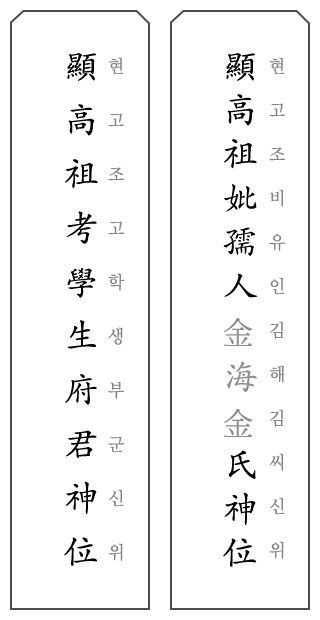 顯高祖考學生府君神位
현고조고학생부군신위
顯高祖妣孺人金海金氏神位
현고조비유인김해김씨신위